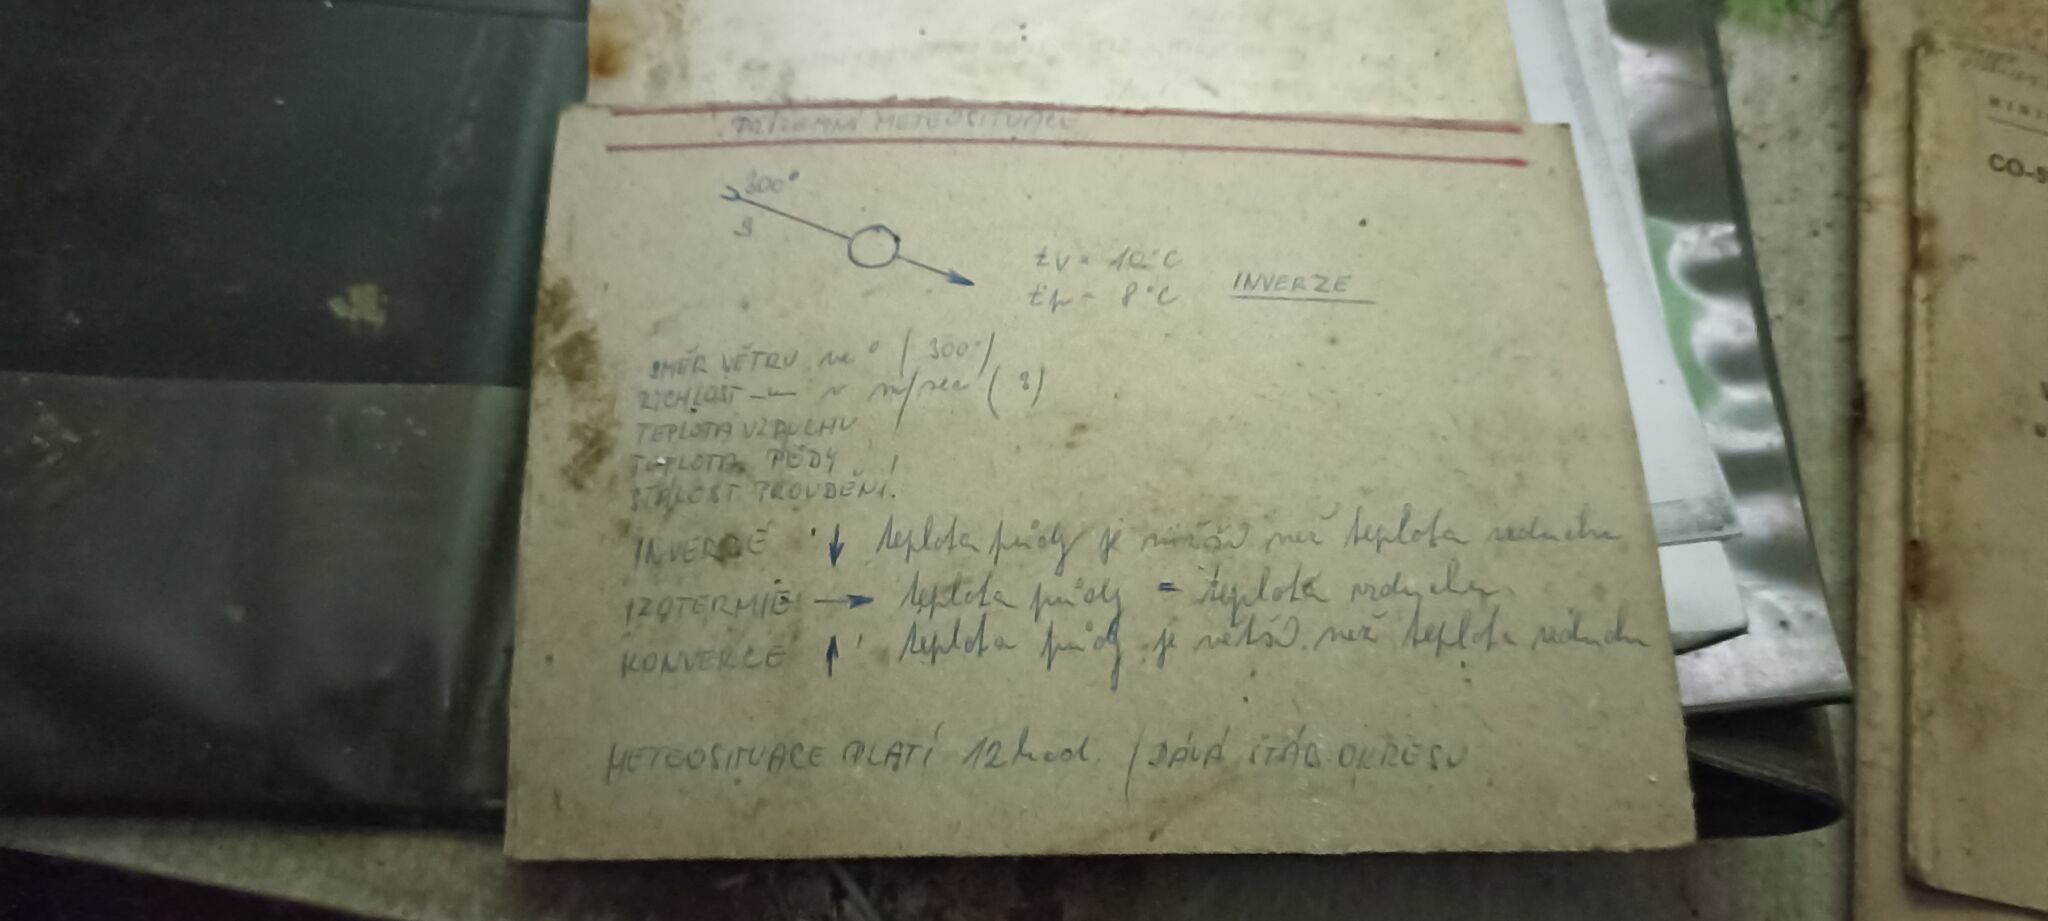 PŘÍZEMNÍ METEOSITUACE
300°
3
tv = 10°C
tp = 8°C
INVERZE
SMĚR VĚTRU ve ° (300°)
RYCHLOST -"- v m/sec (3)
TEPLOTA VZDUCHU
TEPLOTA PŮDY
STÁLOST PROUDĚNÍ!
INVERZE ↓ teplota půdy je nižší než teplota vzduchu
IZOTERMIE → teplota půdy = teplota vzduchu
KONVERCE ↑ teplota půdy je větší než teplota vzduchu
METEOSITUACE PLATÍ 12 hod. / DÁVÁ ŠTÁB OKRESU
CO-